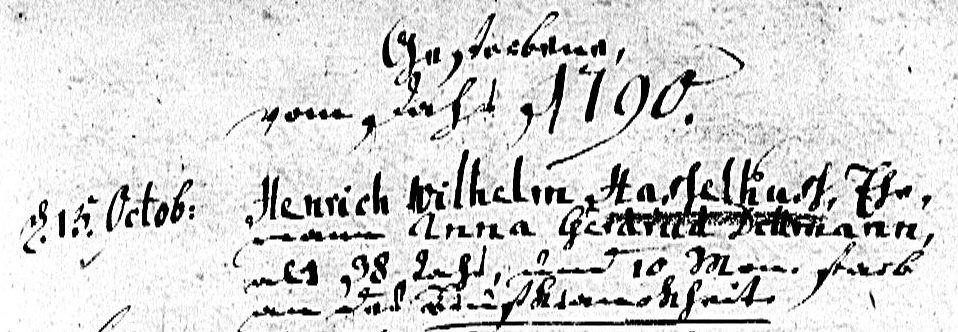 Gestorbene,
vom Jahr 1790.
d. 15. Octob: Henrich Wilhelm Hasselkuss, Ehe,
mann Anna Gerdrut Dellmann,
alt 38 Jahr, und 10 Mon. starb
an der Brustkrankheit.